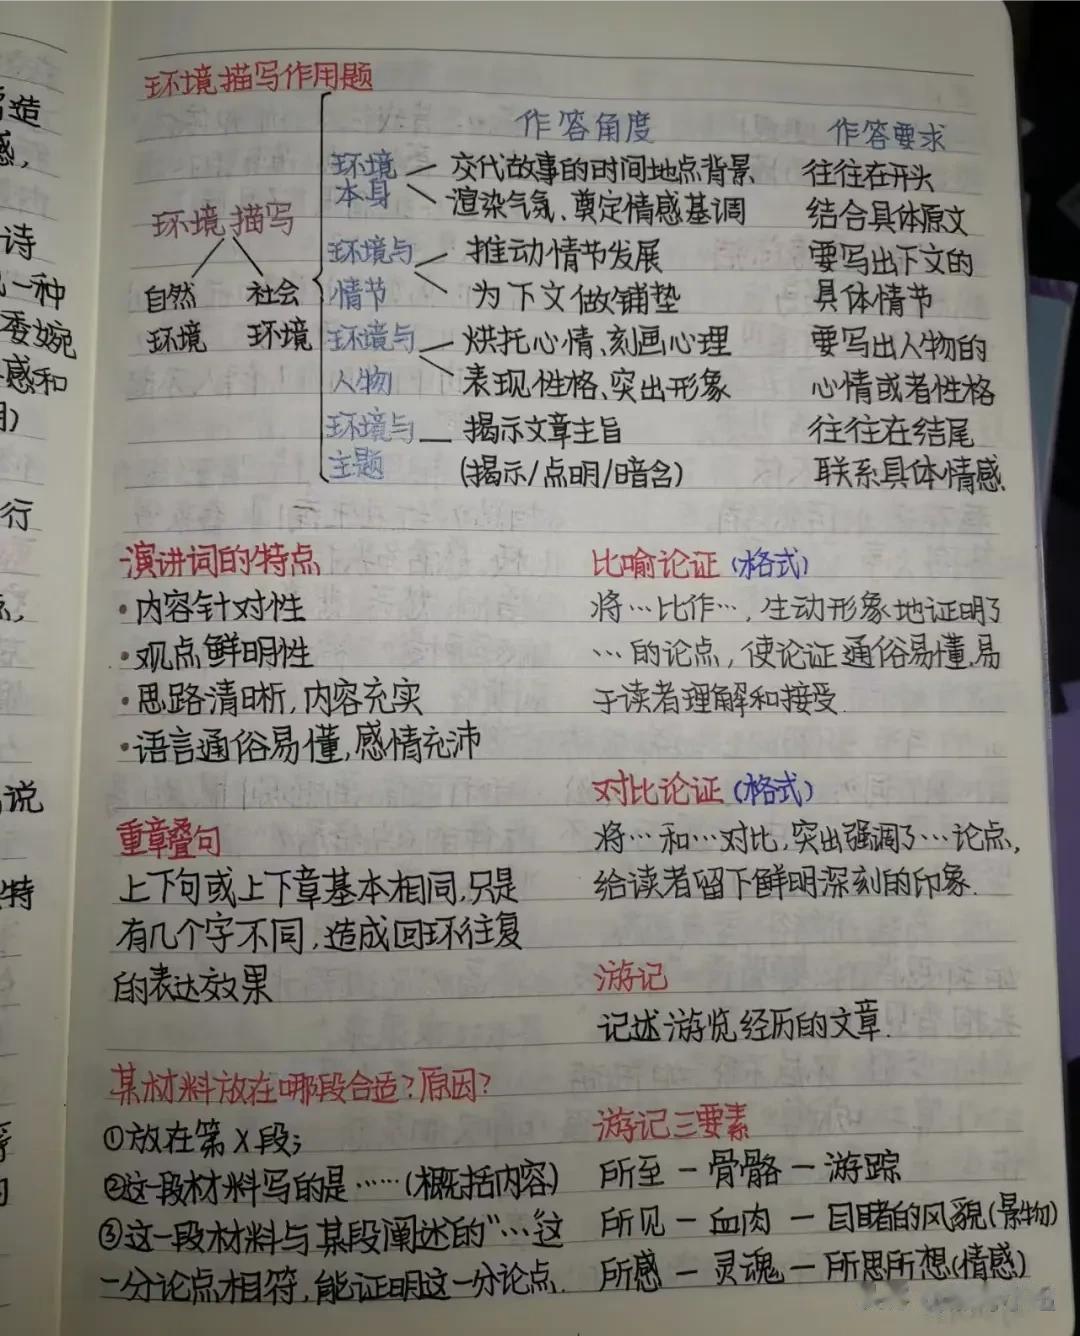 环境描写作用题
作答角度 作答要求
环境本身 交代故事的时间地点背景 往往在开头
渲染气氛、奠定情感基调 结合具体原文
环境描写
自然环境 社会环境
环境与情节 推动情节发展 要写出下文的
为下文做铺垫 具体情节
环境与人物 烘托心情、刻画心理 要写出人物的
表现性格、突出形象 心情或者性格
环境与主题 揭示文章主旨 往往在结尾
(揭示/点明/暗含) 联系具体情感
演讲词的特点
·内容针对性
·观点鲜明性
·思路清晰,内容充实
·语言通俗易懂,感情充沛
重章叠句
上下句或上下章基本相同,只是
有几个字不同,造成回环往复
的表达效果
某材料放在哪段合适?原因?
①放在第X段;
②这一段材料写的是……(概括内容)
③这一段材料与某段阐述的“…”这
一分论点相符,能证明这一分论点.
比喻论证(格式)
将…比作…,生动形象地证明了
…的论点,使论证通俗易懂,易
于读者理解和接受.
对比论证(格式)
将…和…对比,突出强调了…论点,
给读者留下鲜明深刻的印象.
游记
记述游览经历的文章.
游记三要素
所至—骨骼—游踪
所见—血肉—目睹的风貌(景物)
所感—灵魂—所思所想(情感)
造
感,
诗
一种
委婉
感和
行
说
特